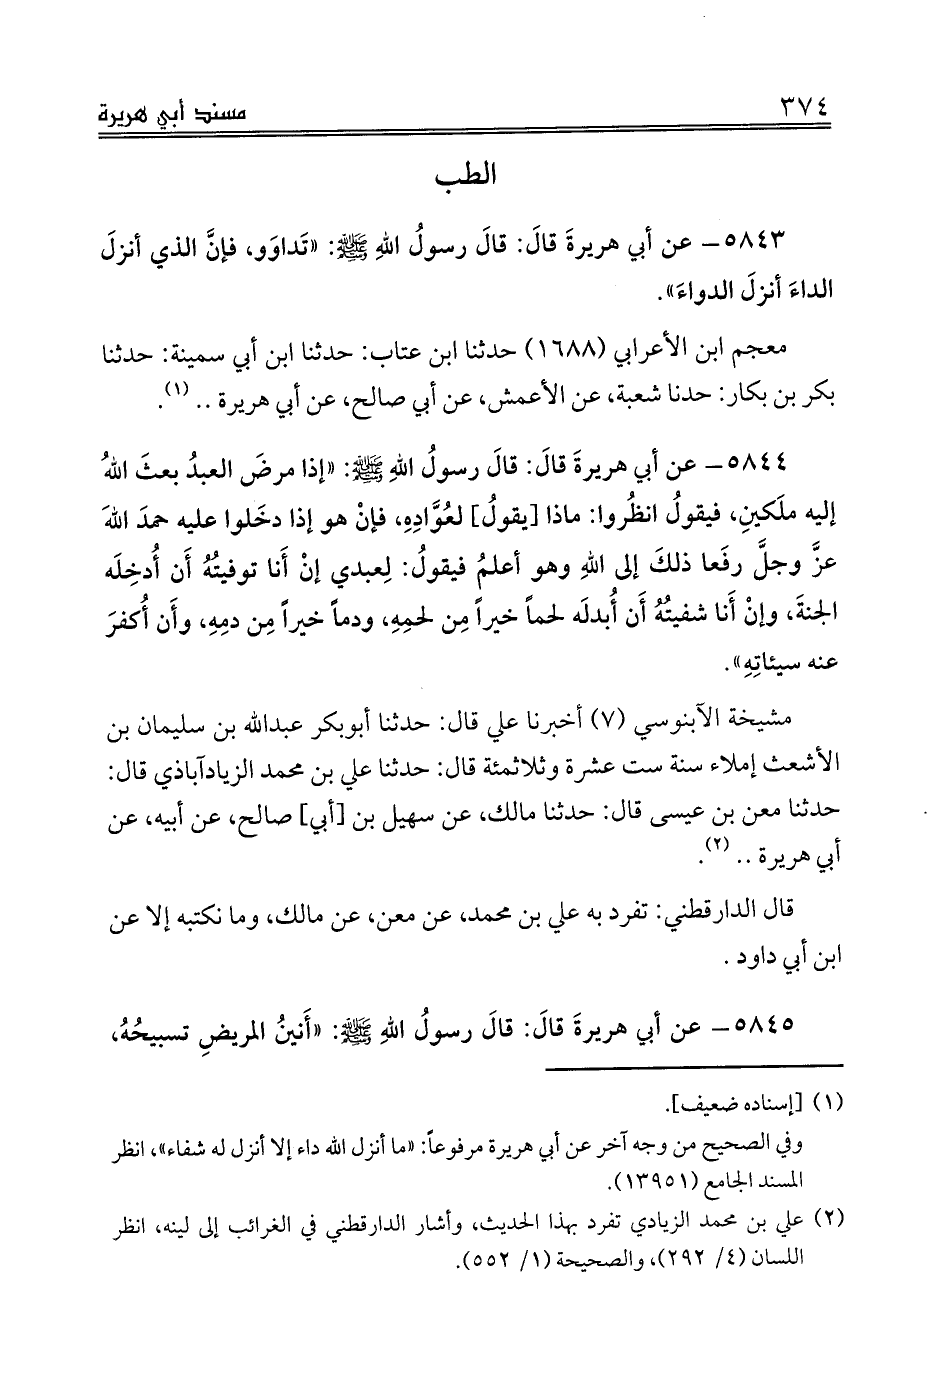 ٣٧٤ مسند أبي هريرة
الطب
٥٨٤٣- عن أبي هريرةَ قالَ: قالَ رسولُ اللهِ ﷺ: «تَداوَو، فإنَّ الذي أنزلَ
الداءَ أنزلَ الدواءَ».
معجم ابن الأعرابي (١٦٨٨) حدثنا ابن عتاب: حدثنا ابن أبي سمينة: حدثنا
بكر بن بكار: حدنا شعبة، عن الأعمش، عن أبي صالح، عن أبي هريرة .. (١).
٥٨٤٤- عن أبي هريرةَ قالَ: قالَ رسولُ اللهِ ﷺ: «إذا مرضَ العبدُ بعثَ اللهُ
إليه ملَكينِ، فيقولُ انظُروا: ماذا [يقولُ] لعُوَّادِهِ، فإنْ هو إذا دخَلوا عليه حمدَ اللهَ
عزَّ وجلَّ رفَعا ذلكَ إلى اللهِ وهو أعلمُ فيقولُ: لِعبدي إنْ أنا توفيتُهُ أن أُدخِلَه
الجنةَ، وإنْ أنا شفيتُهُ أن أُبدلَه لحماً خيراً مِن لحمِهِ، ودماً خيراً مِن دمِهِ، وأن أُكفرَ
عنه سيئاتِهِ».
مشيخة الآبنوسي (٧) أخبرنا علي قال: حدثنا أبوبكر عبدالله بن سليمان بن
الأشعث إملاء سنة ست عشرة وثلاثمئة قال: حدثنا علي بن محمد الزيادآباذي قال:
حدثنا معن بن عيسى قال: حدثنا مالك، عن سهيل بن [أبي] صالح، عن أبيه، عن
أبي هريرة .. (٢).
قال الدارقطني: تفرد به علي بن محمد، عن معن، عن مالك، وما نكتبه إلا عن
ابن أبي داود .
٥٨٤٥- عن أبي هريرةَ قالَ: قالَ رسولُ اللهِ ﷺ: «أَنينُ المريضِ تسبيحُهُ،
(١) [إسناده ضعيف].
وفي الصحيح من وجه آخر عن أبي هريرة مرفوعاً: «ما أنزل الله داء إلا أنزل له شفاء»، انظر
المسند الجامع (١٣٩٥١).
(٢) علي بن محمد الزيادي تفرد بهذا الحديث، وأشار الدارقطني في الغرائب إلى لينه، انظر
اللسان (٤/ ٢٩٢)، والصحيحة (١/ ٥٥٢).